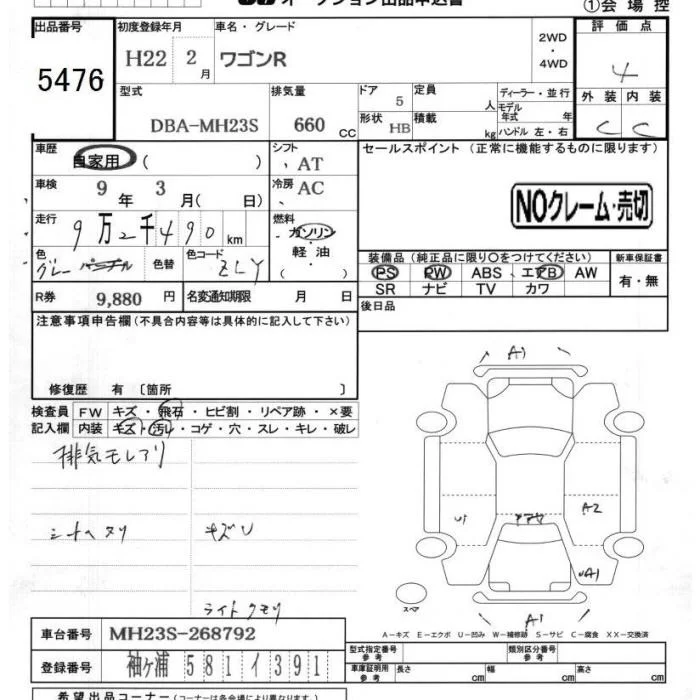 オークション出品申込書
①会場控
出品番号 初度登録年月 車名・グレード 2WD・4WD 評価点
5476 H22 2月 ワゴンR 4
型式 排気量 ドア 5 定員 人 ディーラー・並行 外装 内装
DBA-MH23S 660 CC 形状 HB 積載 kg モデル年式 年 ハンドル 左・右 C C
車歴 自家用 ( ) シフト 、AT セールスポイント (正常に機能するものに限ります)
車検 9年 3月( 日) 冷房 、AC
NOクレーム・売切
走行 9万2千490km 燃料 ガソリン・軽油・( )
色 グレー パープル 色替 色コード ZLY
装備品 (純正品に限り○をつけてください) 新車保証書
PS PW ABS エアB AW 有・無
SR ナビ TV カワ
R券 9,880円 名変通知期限 月 日 後日品
注意事項申告欄 (不具合内容等は具体的に記入して下さい)
修復歴 有 〔箇所 〕
検査員 FW キズ・飛石・ヒビ割・リペア跡・×要
記入欄 内装 キズ・汚れ・コゲ・穴・スレ・キレ・破レ
排気モレアリ
シートヘタリ キズU
ライトクモリ
A1
U1 A2
UA1
A1
スペア
A－キズ E－エクボ U－凹み W－補修跡 S－サビ C－腐食 XX－交換済
車台番号 MH23S-268792 型式指定番号 参考 類別区分番号 参考
登録番号 袖ヶ浦 581 イ 391 車庫証明用 参考 長さ cm 幅 cm 高さ cm
希望出品コーナー (コーナーは各会場により異なります。)